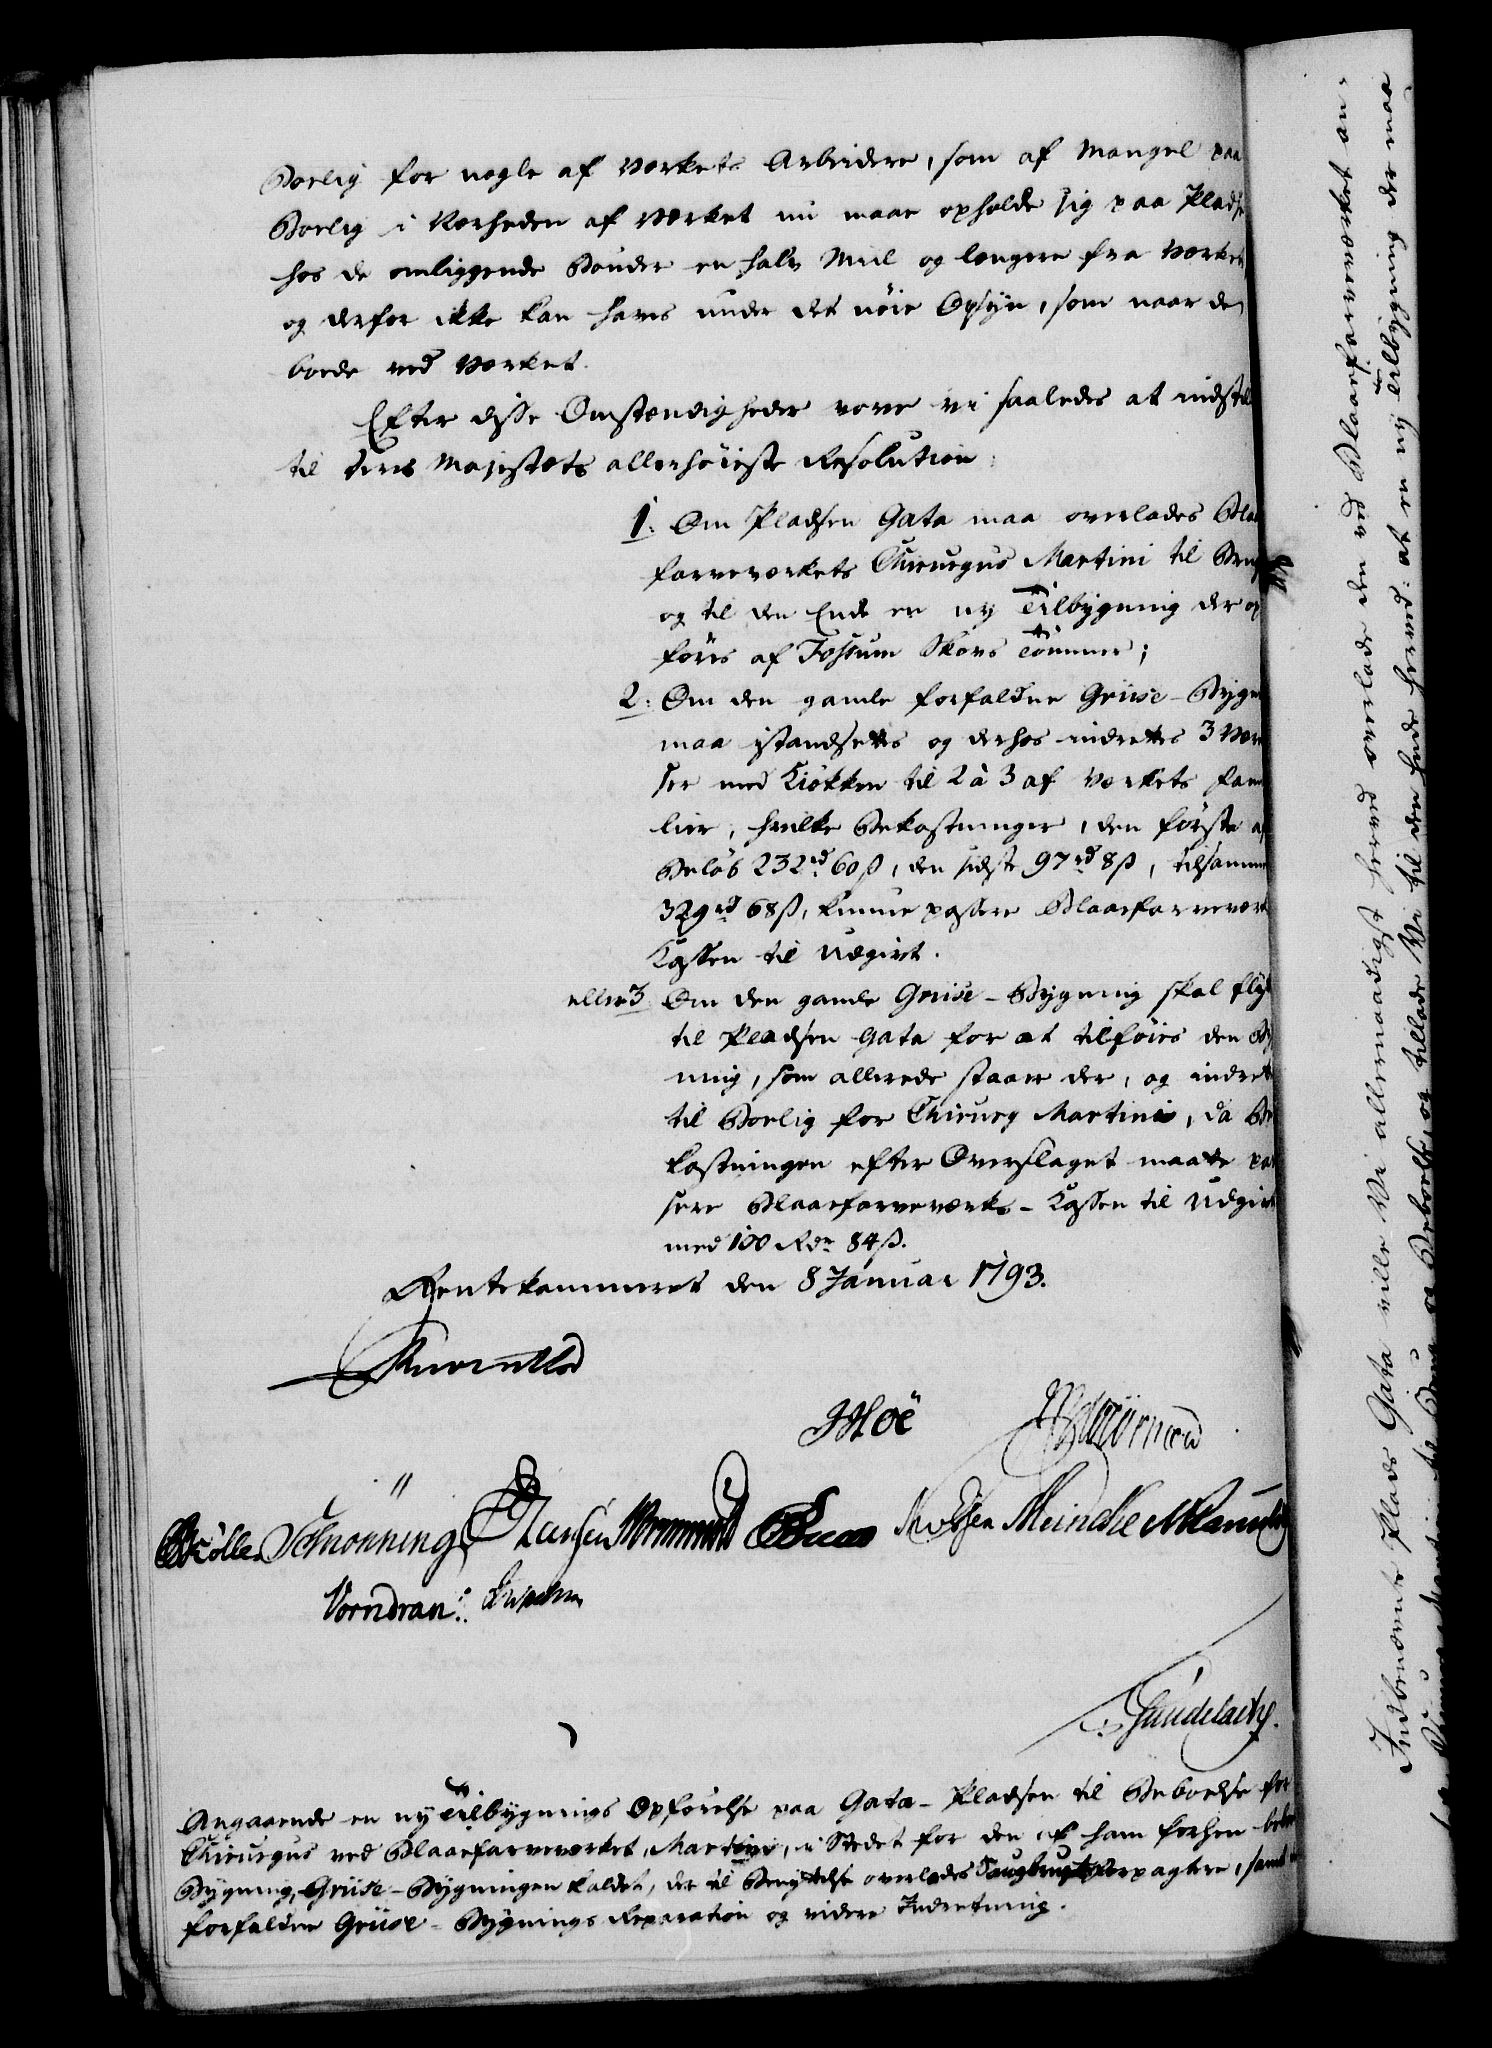 Boelig for nogle af Værkets Arbeidere, som af Mangel paa
Boelig i Nærheden af Værket nu maae opholde sig paa Pladse
hos de omliggende Bønder en halv Miil og længere fra Værket,
og derfor ikke kan haves under det nøie Opsyn, som naar de
boede ved Værket.
Efter disse Omstændigheder vove vi saaledes at indstil
til Deres Majestæts allerhøieste Resolution:
1. Om Pladsen Gata maa overlades Blaa
farveværkets Chirurgus Martini til Brug
og til den Ende en ny Tilbygning der op
føres af Fossum Skovs Tømmer;
2. Om den gamle forfaldne Gruse-Bygn
maa istandsættes og derhos indrettes 3 Værel
ser med Kiøkken til 2 à 3 af Værkets Fami
lier, hvilke Bekostninger, den første af
Beløb 232 rd 60 ß, den sidste 97 rd 8 ß, tilsamme
329 rd 68 ß, kunne passere Blaaefarveværk
Kassen til Udgivt.
eller 3. Om den gamle Gruse-Bygning skal flyt
til Pladsen Gata for at tilføies den By
ning, som allerede staaer der, og indrett
til Boelig for Chirurg Martini, da Be
kostningen efter Overslaget maatte pas
sere Blaaefarveværks-Kassen til Udgivt
med 100 Rdr 84 ß.
Rentekammeret den 8 Januar 1793.
Hoë
Schrønning Hansen Wormskiold Meincke
Vorndran
Gundelach.
Angaaende en ny Tilbygnings Opførelse paa Gata-Pladsen til Beboelse for
Chirurgus ved Blaaefarveværket, Martini, i Stedet for den af ham forhen bebo
Bygning, Gruse-Bygningen kaldet, der til Benyttelse overlades Saugbrugs Forpagtere, samt
forfaldne Gruse-Bygnings Reparation og videre Indretning.
Indbenævnte Plads Gata ville Vi allernaadigst herved overlade den ved Blaaefarveværket an-
Vi til den Ende herved: at en ny Tilbygning der maa